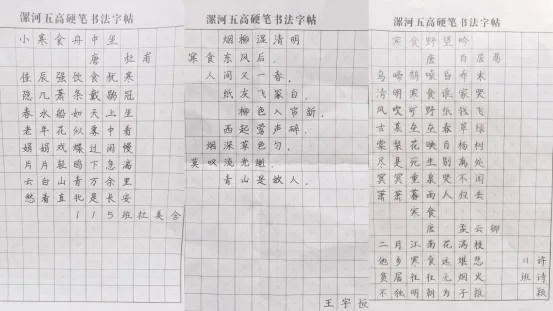 漯河五高硬笔书法字帖
小寒食舟中坐
唐 杜甫
佳辰强饮食犹寒
隐几萧条戴鹖冠
春水船如天上坐
老年花似雾中看
娟娟戏蝶过闲幔
片片轻鸥下急湍
云白山青万余里
愁看直北是长安
115班杜美含
漯河五高硬笔书法字帖
烟柳湿清明
寒食东风后,
人间又一春,
纸灰飞冢白
柳色入帘新,
西起莺声碎,
烟深草色匀,
莫叹流光逝,
青山是故人,
王宇恒
漯河五高硬笔书法字帖
寒食野望吟
唐 白居易
乌啼鹊噪昏乔木
清明寒食谁家哭
风吹旷野纸钱飞
古墓垒垒春草绿
棠梨花映白杨树
尽是死生别离处
冥冥重泉哭不闻
萧萧暮雨人归去
寒食
唐 孟云卿
二月江南花满枝
他乡寒食远堪悲
贫居往往无烟火
不独明朝为子推
11班
许诗颖